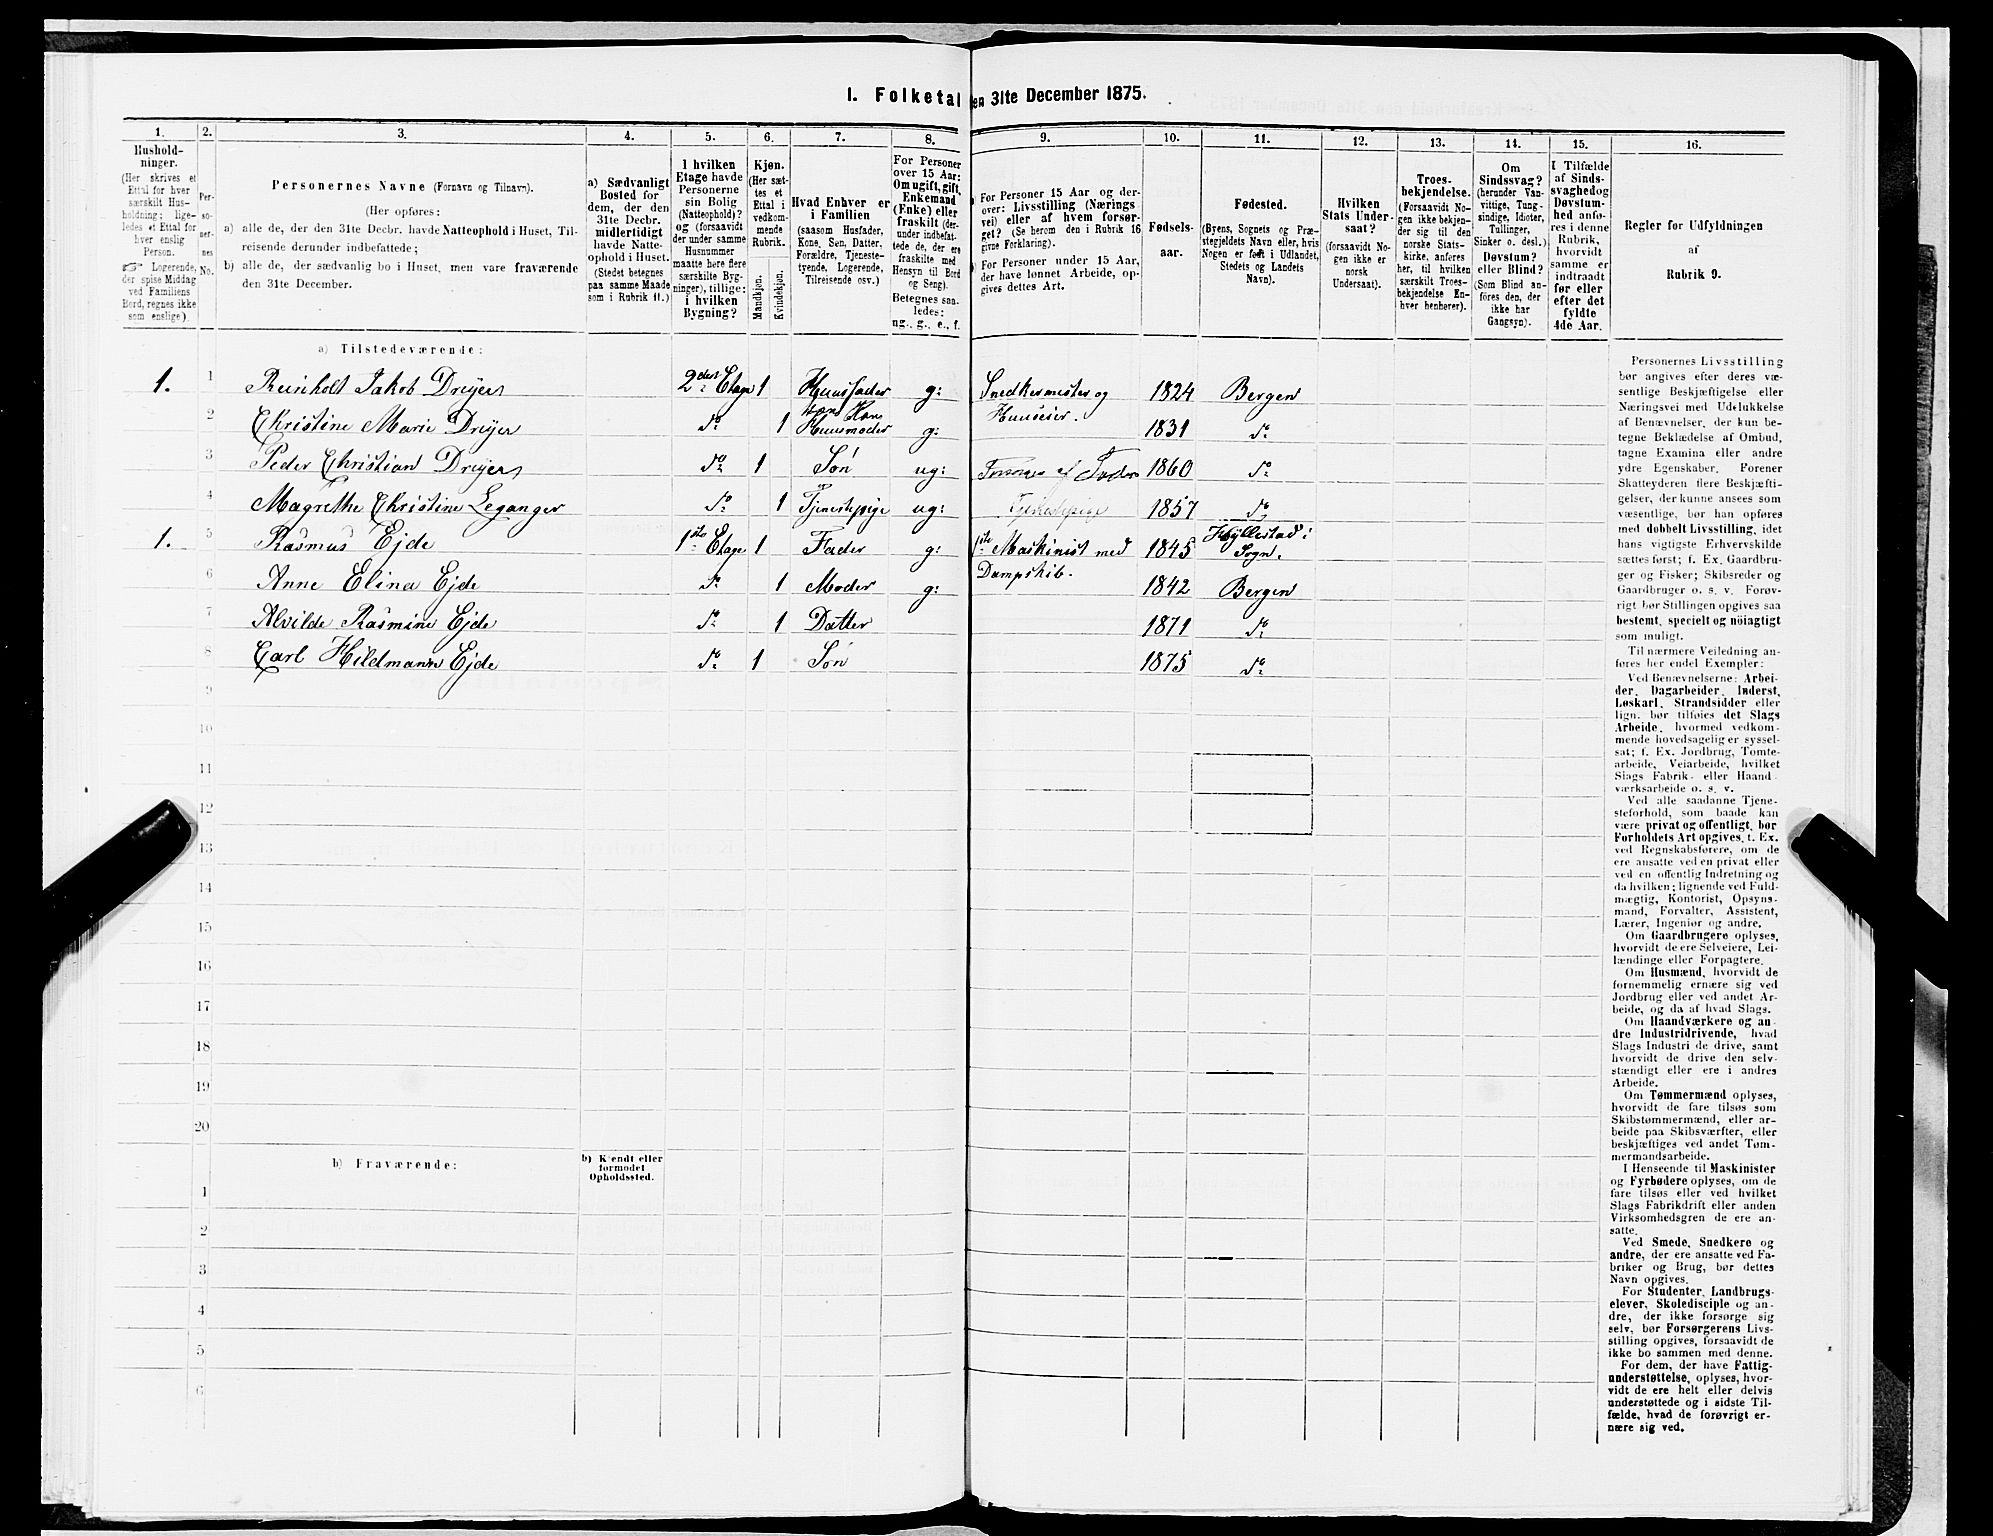 1. Folketal den 31te December 1875.
1.
Hushold-
ninger.
(Her skrives et
Ettal for hver
særskilt Hus-
holdning; lige-
ledes et Ettal for
hver enslig
Person.
☞ Logerende,
der spise Middag
ved Familiens
Bord, regnes ikke
som enslige).
2.
Per-
so-
ner-
nes
No.
3.
Personernes Navne (Fornavn og Tilnavn).
(Her opføres:
a) alle de, der den 31te Decbr. havde Natteophold i Huset, Til-
reisende derunder indbefattede;
b) alle de, der sædvanlig bo i Huset, men vare fraværende
den 31te December.
4.
a) Sædvanligt
Bosted for
dem, der den
31te Decbr.
midlertidigt
havde Natte-
ophold i Huset.
(Stedet betegnes
paa samme Maade
som i Rubrik 11.)
5.
I hvilken
Etage havde
Personerne
sin Bolig
(Natteophold)?
og (forsaavidt
der under samme
Husnummer
maatte høre flere
særskilte Byg-
ninger), tillige:
i hvilken
Bygning?
6.
Kjøn.
(Her sæt-
tes et
Ettal i
vedkom-
mende
Rubrik.
Mandkjøn.
Kvindekjøn.
7.
Hvad Enhver er
i Familien
(saasom Husfader,
Kone, Søn, Datter,
Forældre, Tjeneste-
tyende, Logerende,
Tilreisende osv.)
8.
For Personer
over 15 Aar:
Om ugift, gift,
Enkemand
(Enke) eller
fraskilt (der-
under indbefat-
tede de, der ere
fraskilte med
Hensyn til Bord
og Seng).
Betegnes saa-
ledes:
ug., g., e., f.
9.
For Personer 15 Aar og der-
over: Livsstilling (Nærings
vei) eller af hvem forsør-
get? (Se herom den i Rubrik 16
givne Forklaring).
For Personer under 15 Aar,
der have lønnet Arbeide, op-
gives dettes Art.
10.
Fødsels-
aar.
11.
Fødested.
(Byens, Sognets og Præ-
stegjeldets Navn eller, hvis
Nogen er født i Udlandet,
Stedets og Landets
Navn).
12.
Hvilken
Stats Under-
saat?
(forsaavidt No-
gen ikke er
norsk
Undersaat).
13.
Troes-
bekjendelse.
(Forsaavidt No-
gen ikke bekjen-
der sig til den
norske Stats-
kirke, anføres
her, til hvilken
særskilt Troes-
bekjendelse En-
hver henhører).
14.
Om
Sindssvag?
(herunder Van-
vittige, Tung-
sindige, Idioter,
Tullinger,
Sinker o. desl.)
Døvstum?
eller Blind?
(Som Blind an-
føres den, der
ikke har
Gangsyn).
15.
I Tilfælde
af Sinds-
svaghed og
Døvstum-
hed anfø-
res i denne
Rubrik,
hvorvidt
samme er
indtraadt
før eller
efter det
fyldte
4de Aar.
16.
Regler for Udfyldningen
af
Rubrik 9.
a) Tilstedeværende:
1. 1 Reinholt Jakob Dreyer 2den Etage 1 Huusfader g: Snedkermester og 1824 Bergen
2 Christine Marie Dreyer do 1 hans Kone Huusmoder g: Huuseier. 1831 do
3 Peder Christian Dreyer do 1 Søn ug: Forsørges af Fader 1860 do
4 Magrethe Christine Leganger do 1 Tjenestepige ug: Tjenestepige 1857 do
1. 5 Rasmus Ejde 1ste Etage 1 Fader g: 1ste Maskinist med 1845 Hyllestad i Sogn.
6 Anne Elina Ejde do 1 Moder g: Dampskib. 1842 Bergen
7 Alvilde Rasmine Ejde do 1 Datter 1871 do
8 Carl Hildmann Ejde do 1 Søn 1875 do
9
10
11
12
13
14
15
16
17
18
19
20
b) Fraværende:
b) Kjendt eller
formodet
Opholdssted.
1
2
3
4
5
6
Personernes Livsstilling
bør angives efter deres væ-
sentlige Beskjæftigelse eller
Næringsvei med Udelukkelse
af Benævnelser, der kun be-
tegne Beklædelse af Ombud,
tagne Examina eller andre
ydre Egenskaber. Forener
Skatteyderen flere Beskjæfti-
gelser, der kunne ansees som
væsentlige, bør han opføres
med dobbelt Livsstilling, idet
hans vigtigste Erhvervskilde
sættes først; f. Ex. Gaardbru-
ger og Fisker; Skibsreder og
Gaardbruger o. s. v. Forøv-
rigt bør Stillingen opgives saa
bestemt, specielt og nöiagtigt
som muligt.
Til nærmere Veiledning an-
føres her endel Exempler:
Ved Benævnelserne: Arbei-
der, Dagarbeider, Inderst,
Løskarl, Strandsidder eller
lign. bør tilføies det Slags
Arbeide, hvormed vedkom-
mende hovedsagelig er syssel-
sat; f. Ex. Jordbrug, Tomte-
arbeide, Veiarbeide, hvilket
Slags Fabrik- eller Haand-
værksarbeide o. s. v.
Ved alle saadanne Tjene-
steforhold, som baade kan
være privat og offentligt, bør
Forholdets Art opgives, t. Ex.
ved Regnskabsførere, om de
ere ansatte ved en privat eller
ved en offentlig Indretning og
da hvilken; lignende ved Fuld-
mægtig, Kontorist, Opsyns-
mand, Forvalter, Assistent,
Lærer, Ingeniør og andre.
Om Gaardbrugere oplyses,
hvorvidt de ere Selveiere, Lei-
lændinge eller Forpagtere.
Om Husmænd, hvorvidt de
fornemmelig ernære sig ved
Jordbrug eller ved andet Ar-
beide, og da af hvad Slags.
Om Haandværkere og an-
dre Industridrivende, hvad
Slags Industri de drive, samt
hvorvidt de drive den selv-
stændigt eller ere i andres
Arbeide.
Om Tømmermænd oplyses,
hvorvidt de fare tilsøs som
Skibstømmermænd, eller ar-
beide paa Skibsværfter, eller
beskjæftiges ved andet Tøm-
mermandsarbeide.
I Henseende til Maskinister
og Fyrbødere oplyses, om de
fare tilsøs eller ved hvilket
Slags Fabrikdrift eller anden
Virksomhedsgren de ere an-
satte.
Ved Smede, Snedkere og
andre, der ere ansatte ved Fa-
briker og Brug, bør dettes
Navn opgives.
For Studenter, Landbrugs-
elever, Skoledisciple og an-
dre, der ikke forsørge sig
selv, bør Forsørgerens Livs-
stilling opgives, forsaavidt de
ikke bo sammen med denne.
For dem, der have Fattig-
understøttelse, oplyses, hvor-
vidt de ere helt eller delvis
understøttede og i sidste Til-
fælde, hvad de forøvrigt er-
nære sig ved.